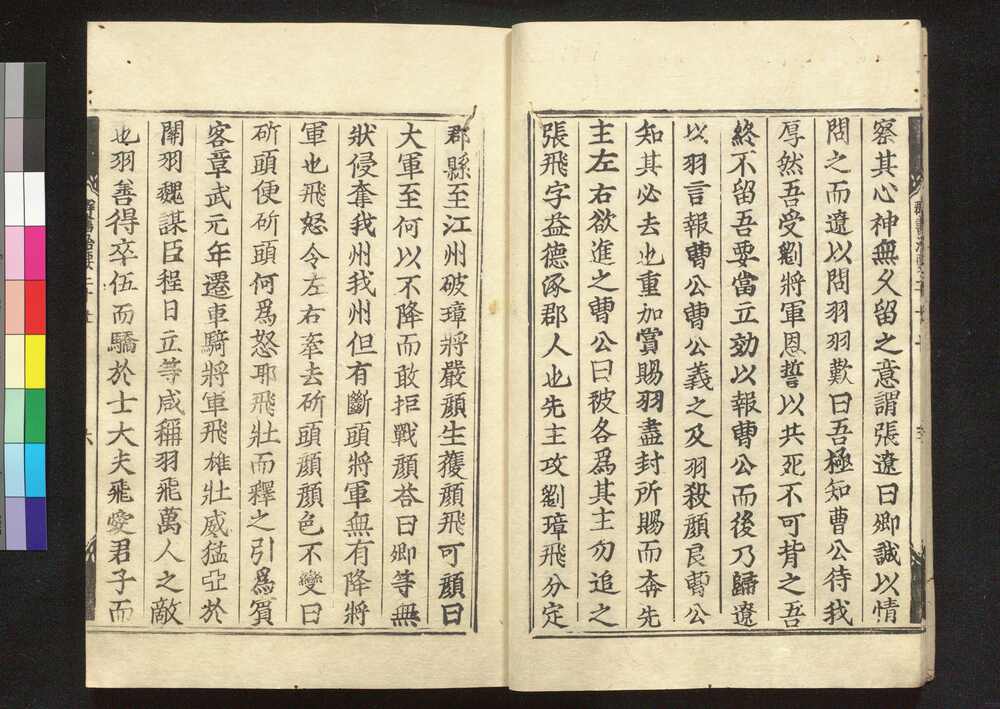 察其心神無久留之意謂張遼曰卿誠以情
問之而遼以問羽羽歎曰吾極知曹公待我
厚然吾受劉將軍恩誓以共死不可背之吾
終不留吾要當立効以報曹公而後乃歸遼
以羽言報曹公曹公義之及羽殺顏良曹公
知其必去也重加賞賜羽盡封所賜而奔先
主左右欲進之曹公曰彼各爲其主勿追之
張飛字益德涿郡人也先主攻劉璋飛分定
郡縣至江州破璋將嚴顏生獲顏飛可顏曰
大軍至何以不降而敢拒戰顏荅曰卿等無
狀侵奪我州我州但有斷頭將軍無有降將
軍也飛怒令左右牽去斫頭顏顏色不變曰
斫頭便斫頭何爲怒耶飛壯而釋之引爲賔
客章武元年遷車騎將軍飛雄壯威猛亞於
關羽魏謀臣程日立等咸稱羽飛萬人之敵
也羽善得卒伍而驕於士大夫飛愛君子而